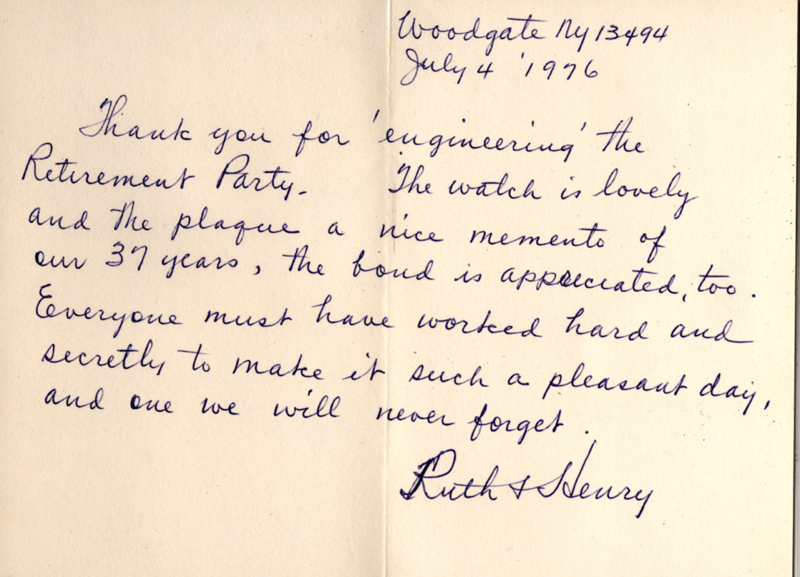 Woodgate Ny 13494
July 4 '1976
Thank you for 'engineering' the
Retirement Party. The watch is lovely
and the plaque a nice memento of
our 37 years, the bond is appreciated, too.
Everyone must have worked hard and
secretly to make it such a pleasant day,
and one we will never forget.
Ruth & Henry